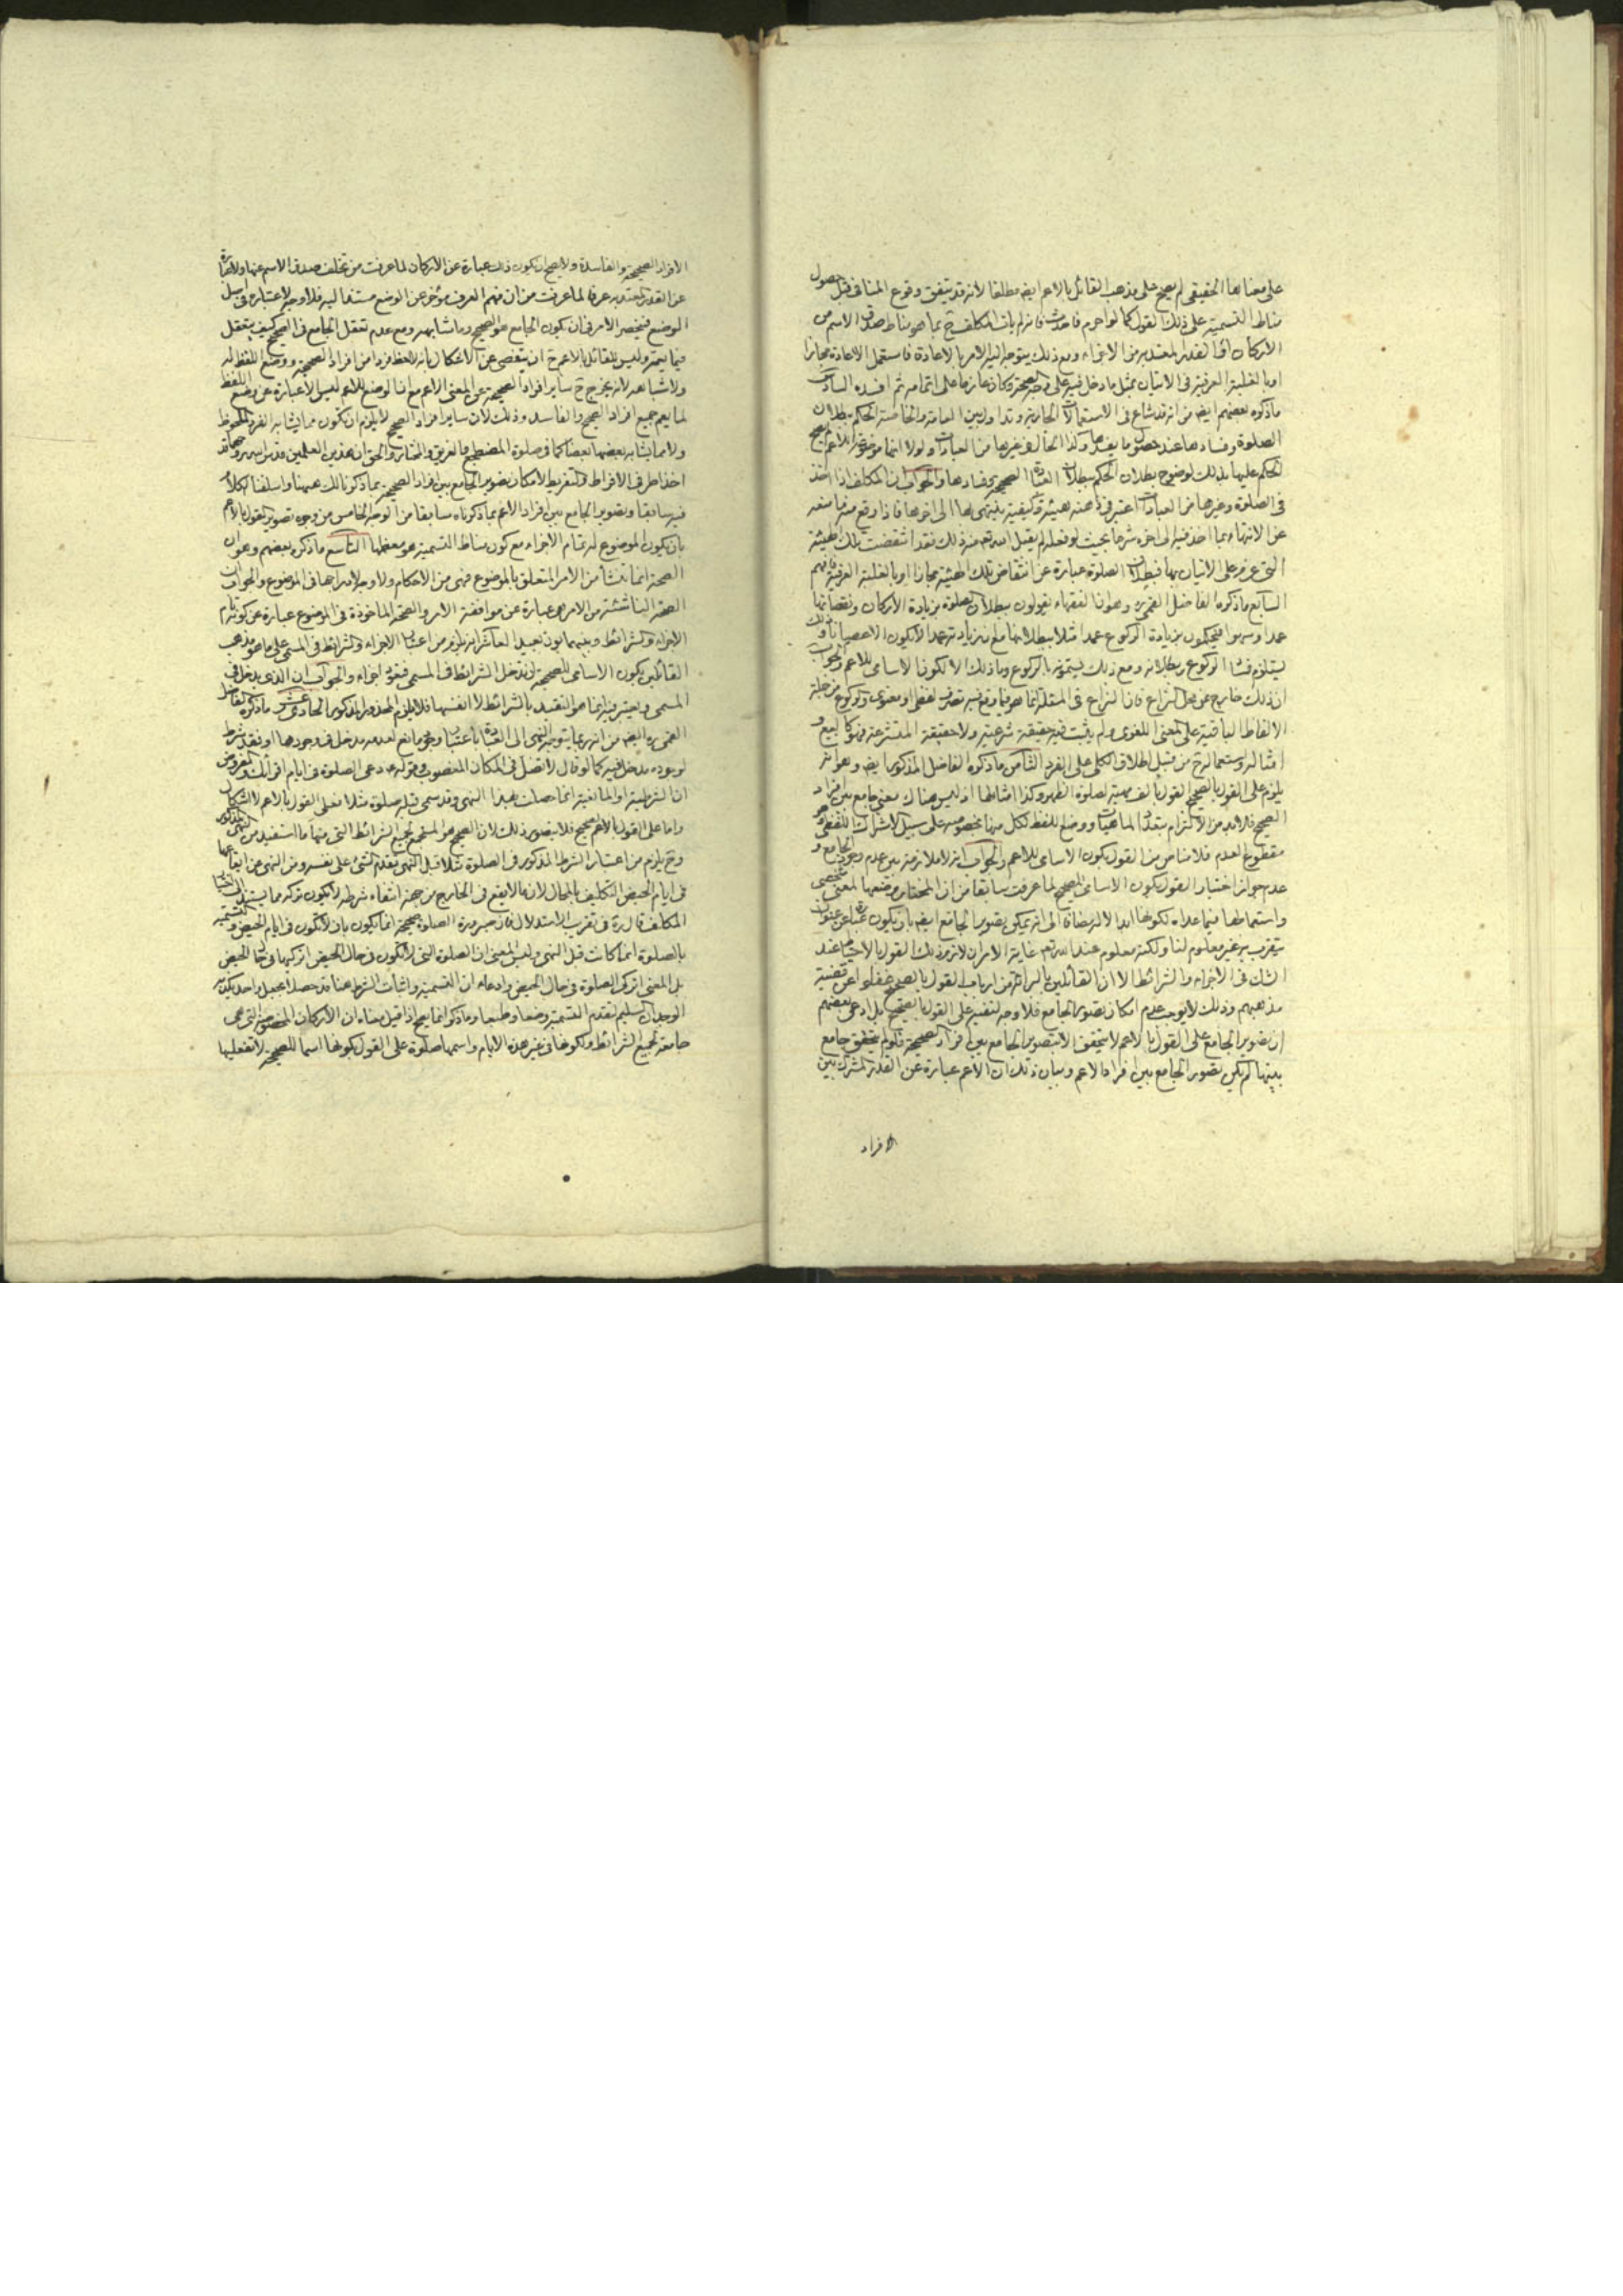 على معناها الحقيقي لم يصح على مذهب القائل بالاعم ايضا مطلقا لانه قد يتفق وقوع المنافي قبل حصول
مناط التسمية على ذلك القول كما لو احرم فاحدث فانه لم يات المكلف ح بما هو مناط صدق الاسم من
الاركان او القدر المعتد به من الاجزاء ومع ذلك يتوجه اليه الامر بالاعادة فاستعمل الاعادة مجازا
ما ذكره بعضهم ايضا من انه قد شاع في الاستعمالات الجارية وتداول بين العامة والخاصة الحكم ببطلان
الصلوة وفسادها عند حصول ما يفسدها وكذا الحال في غيرها من العبادات ولولا انها موضوعة للاعم لم يصح
الحكم عليها بذلك لوضوح بطلان الحكم ببطلان العبادة الصحيحة وفسادها والجواب ان المكلف اذا اخذ
في الصلوة وغيرها من العبادات اعتبر في ذهنه هيئة وكيفية ينتهى بها الى اخرها فاذا وقع منه ما منعه
عن الانتهاء بما اخذ فيه الى اخره شرعا بحيث لو فعله لم يقبل الله تعالى منه ذلك فقد انتقضت تلك الهيئة
التي عزم على الاتيان بها فبطلان الصلوة عبارة عن انتقاض تلك الهيئة مجازا او بالغلبة العرفية فافهم
السابع ما ذكره الفاضل القمي ره وهو ان الفقهاء يقولون ببطلان الصلوة بزيادة الاركان ونقصانها
عمدا وسهوا فيحكمون بزيادة الركوع عمدا مثلا ببطلانها مع ان زيادته عمدا لا يكون الا عصيانا وذلك
يستلزم فساد الركوع وبطلانه ومع ذلك يسمونه بالركوع وما ذلك الا لكون الاسامى للاعم والجواب
ان ذلك خارج عن محل النزاع فان النزاع في المقام انما هو فيما وقع فيه تصرف لفظي او معنوى والركوع من جملة
الالفاظ الباقية على المعنى اللغوى ولم يثبت فيه حقيقة شرعية ولا حقيقة المتشرعة فهو كالبيع و
امثاله واستعماله ح من قبيل اطلاق الكلى على الفرد الثامن ما ذكره الفاضل المذكور ايضا وهو انه
يلزم على القول بالصحيح القول بالف مهية لصلوة الظهر وكذا امثالها اذ ليس هناك معنى جامع بين افراد
الصحيح فلا بد من الالتزام بتعدد الماهيات ووضع اللفظ لكل منها بخصوصه على سبيل الاشتراك اللفظى وهو
مقطوع العدم فلا مناص من القول بكون الاسامى للاعم والجواب انه لا ملازمة بين عدم وجود الجامع و
عدم جواز اختيار القول بكون الاسامى للصحيح لما عرفت سابقا من ان المختار وضعها لمعنى شخصى
واستعمالها فيما عداه لكونها ابدالا له مضافا الى انه يمكن تصوير الجامع ايضا بان يكون عبارة عن عنوان
يتقرب به غير معلوم لنا ولكنه معلوم عند الله تعالى غاية الامر ان لازم ذلك القول بالاحتياط عند
الشك في الاجزاء والشرائط الا ان القائلين بالبرائة من ارباب القول بالصحيح غفلوا عن قضية
مذهبهم وذلك لا يوجب عدم امكان تصوير الجامع فلا وجه للنقض على القول بالصحيح بل ادعى بعضهم
ان تصوير الجامع على القول بالاعم لا يتحقق الا بتصوير الجامع بين افراد الصحيحة فلو لم يتحقق جامع
بينها لم يكن تصور الجامع بين افراد الاعم وبيان ذلك ان الاعم عبارة عن القدر المشترك بين
الافراد
الافراد الصحيحة والفاسدة ولا يصح ان يكون ذلك عبارة عن الاركان لما عرفت من تخلف صدق الاسم عنها ولا عبارة
عن القدر المعتد به عرفا لما عرفت من ان فهم العرف مؤخر عن الوضع مستند اليه فلا وجه لاعتباره في اصل
الوضع فينحصر الامر في ان يكون الجامع هو الصحيح وما شابهه ومع عدم تعقل الجامع في الصحيح كيف يتعقل
فيما يعمه وليس للقائل بالاعم ح ان يتفصى عن الاشكال بانه لاحظ فردا من افراد الصحيحة ووضع اللفظ له
ولاشباهه لانه يخرج ح ساير افراد الصحيحة عن المعنى الاعم مع ان الوضع للاعم ليس الا عبارة عن وضع اللفظ
لما يعم جميع افراد الصحيح والفاسد وذلك لان ساير افراد الصحيح لا يلزم ان يكون مما يشابه الفرد الملحوظ
فيه سابقا وتصوير الجامع بين افراد الاعم بما ذكرناه سابقا من الوجه الخامس من وجوه تصوير القول بالاعم
بان يكون الموضوع له تمام الاجزاء مع كون مناط التسمية هو معظمها التاسع ما ذكره بعضهم وهو ان
الصحة انما تنشأ من الامر المتعلق بالموضوع فهى من الاحكام ولا وجه لادراجها في الموضوع والجواب ان
الصحة الناشئة من الامر هى عبارة عن موافقة الامر والصحة الماخوذة في الموضوع عبارة عن كونه تام
الاجزاء والشرائط وبينهما بون بعيد العاشر انه يلزم من اعتبار الاجزاء والشرائط في المسمى على ما هو مذهب
القائلين بكون الاسامى للصحيحة ان تدخل الشرائط في المسمى فتعود اجزاء والجواب ان الذى يدخل في
المسمى ويعتبر فيه انما هو التقييد بالشرائط لا انفسها فلا يلزم المحذور المذكور الحادى عشر ما ذكره الفاضل
القمى ره ايضا من انه ربما يتوجه النهى الى العبادة باعتبار وجود مانع لعدمه مدخل في وجودها او فقد شرط
لوجوده مدخل فيه كما لو قال لا تصل في المكان المغصوب وقوله ع دعى الصلوة في ايام اقرائك
ان الشرطية او المانعية انما حصلت بهذا النهى وقد سمى قبله صلوة مثلا فعلى القول بالاعم لا اشكال
واما على القول بالصحيح فلا يتصور ذلك لان الصحيح هو المستجمع لجميع الشرائط التي منها ما استفيد من النهى
وح يلزم من اعتبار الشرط المذكور في الصلوة مثلا قبل النهى تقدم الشئ على نفسه ومن النهى عن ايقاعها
في ايام الحيض التكليف بالمحال لان ما لا يقع في الخارج من جهة انتفاء شرطه لا يكون تركه مما يستند الى اختيار
المكلف قال ره في تقريب الاستدلال فان صيرورة الصلوة صحيحة انما يكون بان لا تكون في ايام الحيض والتسمية
بالصلوة انما كانت قبل النهى وليس المعنى ان الصلوة التى لا تكون في حال الحيض اتركيها في حال الحيض
بل المعنى اتركى الصلوة في حال الحيض وادعاء ان التسمية واثبات الشرط هنا قد حصلا بجعل واحد يكذبه
الوجدان السليم لتقدم التسمية وضعا وطبعا وما ذكر انما يصح اذا قيل معناه ان الاركان المخصوصة التى هى
جامعة لجميع الشرائط ولكونها في غير هذه الايام واسمها صلوة على القول بكونها اسما للصحيحة لا تفعليها